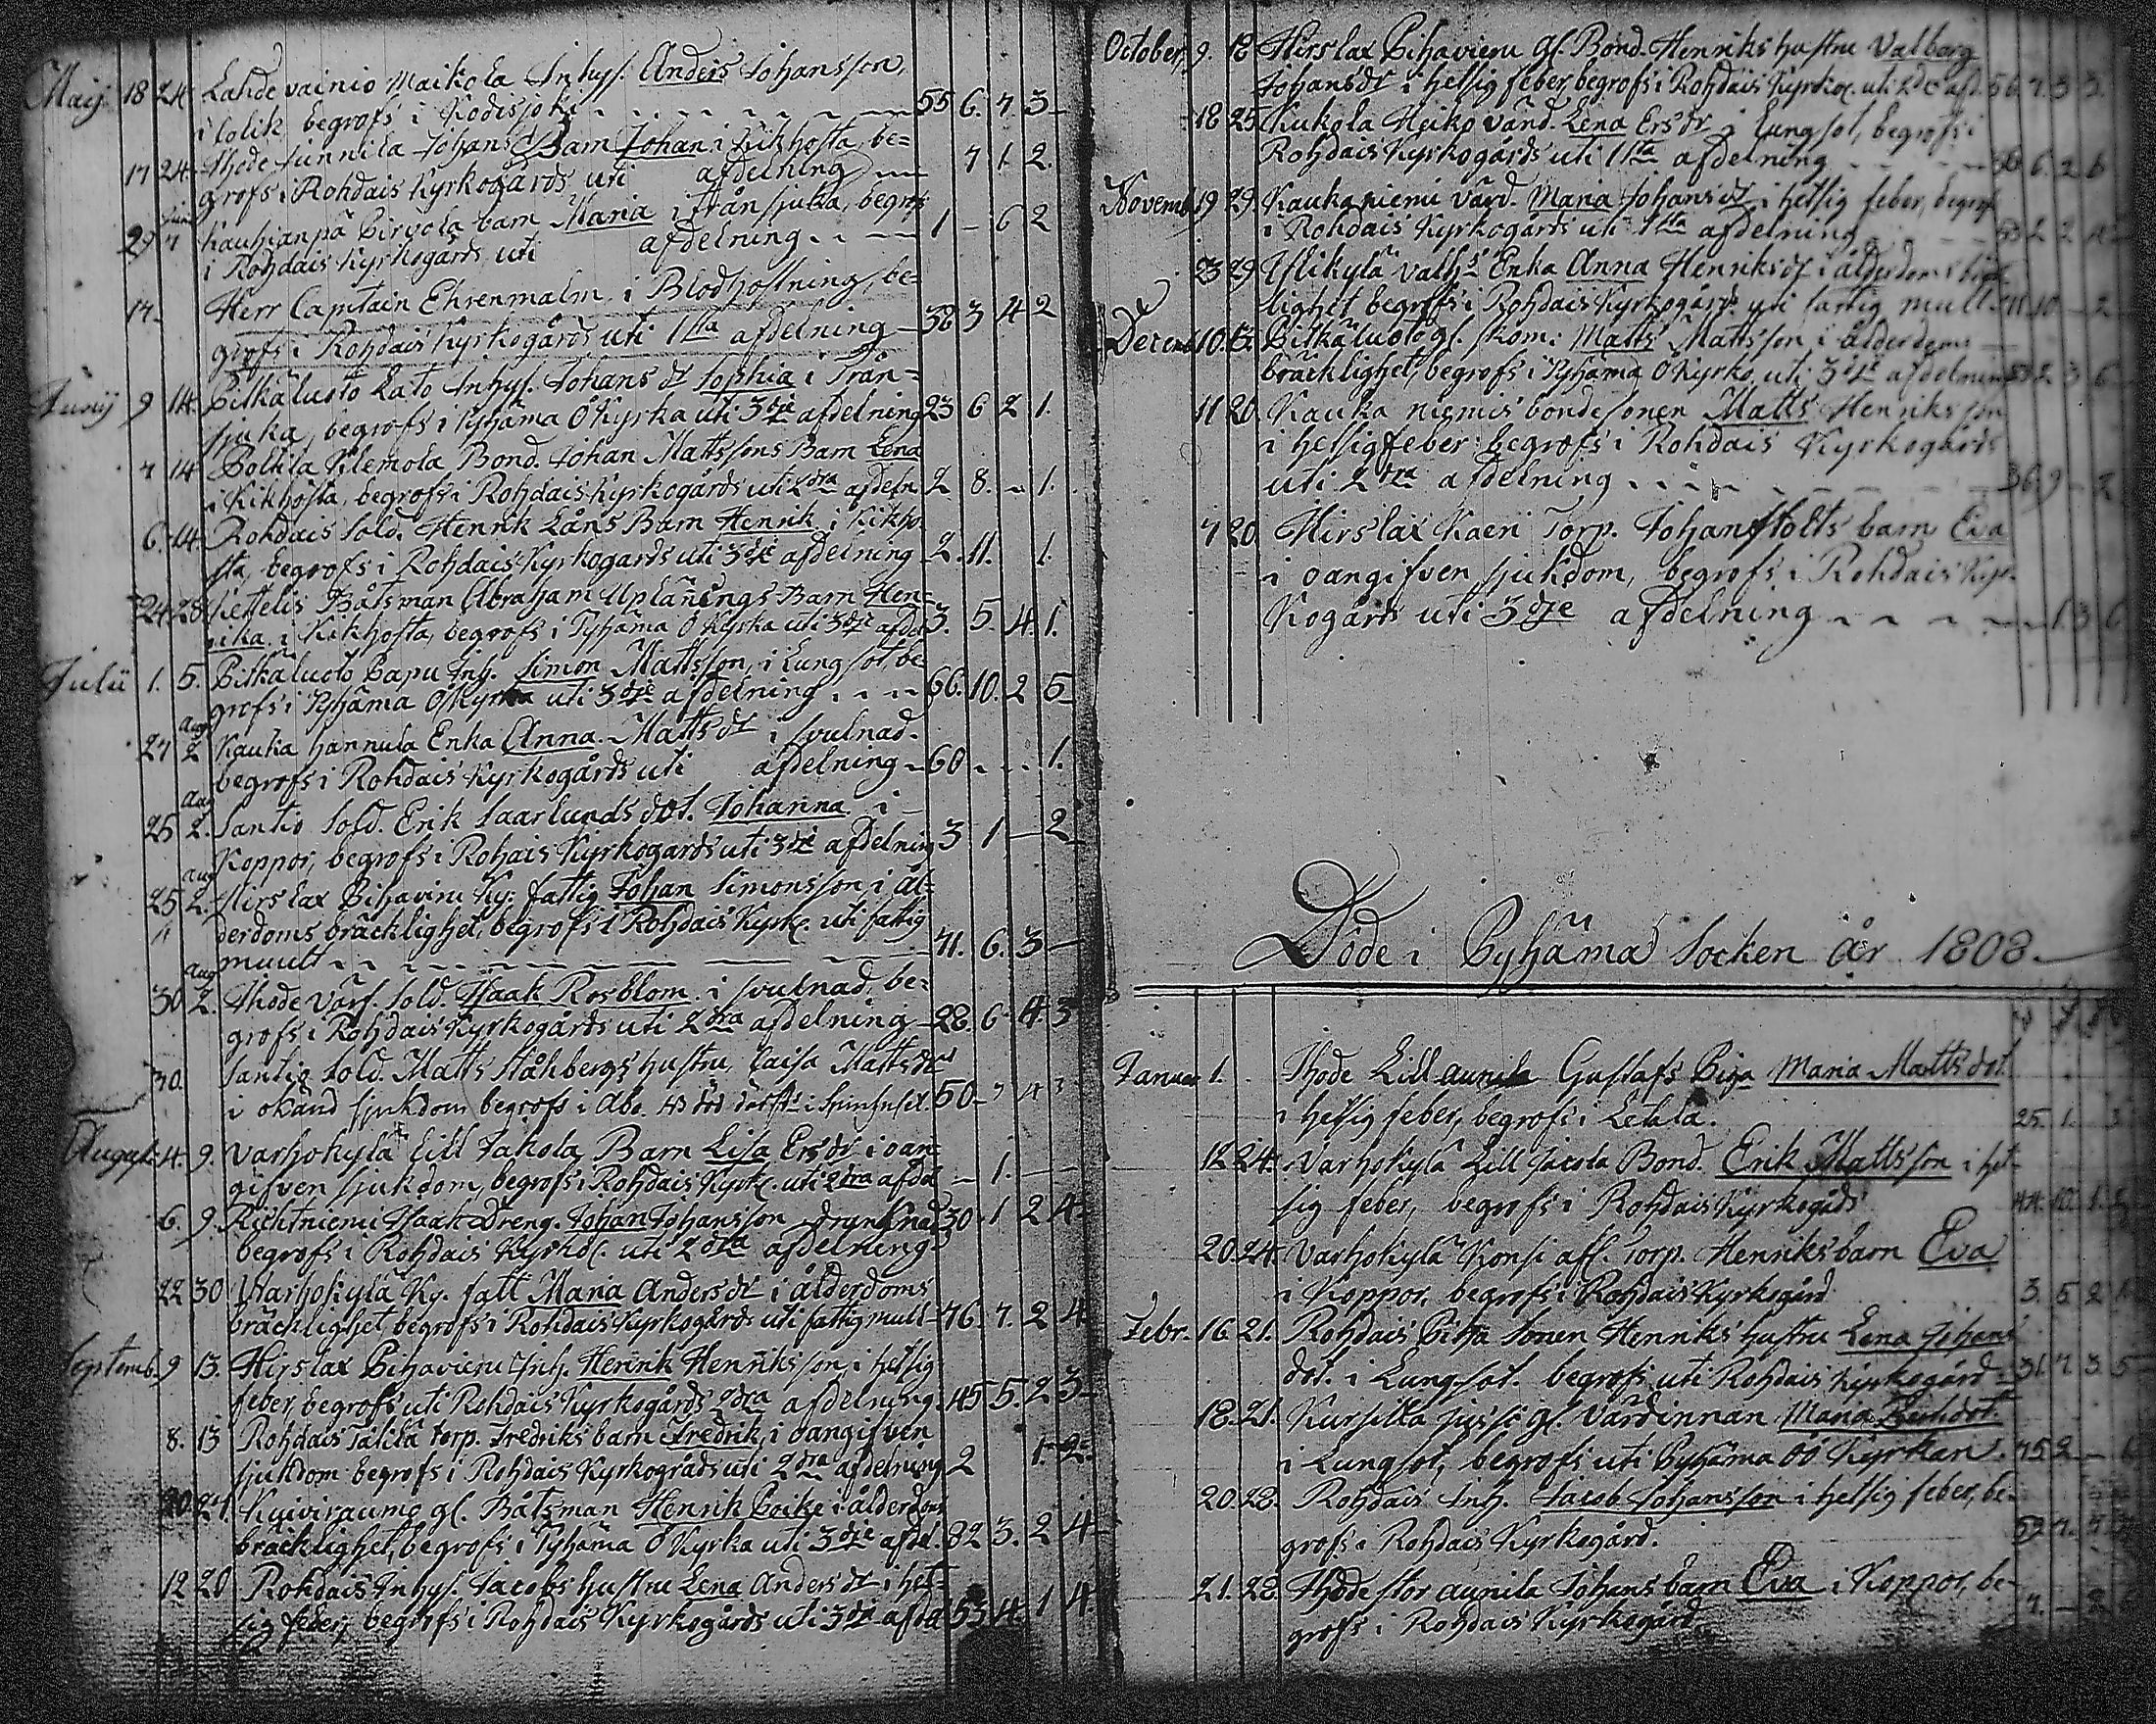 Maij 18 24 Lahdevainio Maikola Inhys. Anders Johansson,
i Colik begrofs i Kodisjoki 55 6. 7. 3
17 24 Ihode Junnila Johans Barn Johan i Kikhosta, be=
grofs i Rohdais Kyrkogårds uti afdelning 7 1. 2.
29 Juni 7 Kauhianpä Pirvola barn Maria i Trånsjuka, begrofs
i Rohdais Kyrkogårds uti afdelning 1 – 6 2
17. Herr Capitain Ehrenmalm i Blodhostning, be=
grofs i Rohdais Kyrkogårds uti 1sta afdelning 38 3 4 2
Junij 9 14. Pitkäluoto Lato Inhys. Johans dt Sophia i Trån=
sjuka, begrofs i Pyhäma Ö Kyrka uti 3dje afdelning 23 6 2 1.
7 14 Poltila Klemola Bond. Johan Mattssons Barn Lena
i Kikhosta, begrofs i Rohdais Kyrkogårds uti 2dra afdeln 2 8. – 1.
6. 14 Rohdais Sold. Henrik Låns Barn Henrik i Kikho=
sta, begrofs i Rohdais Kyrkogårds uti 3dje afdelning 2. 11. 1.
24 28 Kettelis Båtsman Abraham Uplänings Barn Hen=
rika i Kikhosta, begrofs i Pyhäma Ö Kyrka uti 3dje afdel 3. 5. 4. 1.
Julii 1. 5. Pitkäluoto Papu Inh. Simon Mattsson, i Lungsot, be=
grofs i Pyhäma Ö Kyrka uti 3dje afdelning 66. 10. 2 5
27 Aug 2 Kauka Hannula Enka Anna Matts dt i svulnad.
begrofs i Rohdais Kyrkogårds uti afdelning 60 1.
25 Aug 2. Santio Sold. Erik Saarlunds dot. Johanna i
Koppor, begrofs i Rohais Kyrkogards uti 3dje afdelning 3 1 – 2
25 Aug 2. Hirslax Pihavieru Ky. fattig Johan Simonsson i ål=
derdoms bräcklighet, begrofs i Rohdais Kyrko. uti fattig
muult 71. 6. 3
30 Aug 2. Ihode Varf. Sold. Isaak Rosblom i svulnad, be=
grofs i Rohdais Kyrkogårds uti 2dra afdelning 28. 6 4 3
30. Santio Sold. Matts Ståhbergs hustru, Caisa Mattsdr
i okänd sjukdom begrofs i Abo. 50 7 4 3
August 4. 9. Varhokylä Lill Jakola Barn Lisa Ersdr i oan=
gifven sjukdom, begrofs i Rohdais Kyrko. uti 2dra afdel – 1.
6. 9. Rihtniemi Isaak Dreng. Johan Johansson drunknad 30. 1 2 4
begrofs i Rohdais Kyrko. uti 2dra afdelning
22 30 Warhokylä Ky. fatt Maria Anders dt i ålderdoms
bräcklighet, begrofs i Rohdais Kyrkogårds uti fattigmull 76. 7. 2 4
Septemb. 9 13. Hirslax Pihavieru Inh. Henrik Henriksson, i hetsig
feber, begrofs uti Rohdais Kyrkogårds 2dra afdelning. 45 5. 2 3
8. 13 Rohdais Tälilä torp. Fredriks barn Fredrik, i oangifven
sjukdom begrofs i Rohdais Kyrkogråds uti 2dra afdelning 2 1. 2.
20. 27. Kuiviraumo gl. Båtsman Henrik Poike i ålderdoms
bräcklighet, begrofs i Pyhäma Ö Kyrka uti 3dje afdel. 82 3. 2 4
12 20 Rohdais Inhys. Jacobs hustru Lena Anders dt i het=
sig feber, begrofs i Rohdais Kyrkogårds uti 3dje afdel 53 4. 1 4.
October, 9. 18 Hirslax Pihavieru Gl. Bond. Henriks hustru Valborg
Johansdr i hetsig feber, begrofs i Rohdais Kyrkog. uti 2dr afd. 56. 7. 3 3.
18 25. Kukola Heiko värd. Lena Ers dr i Lungsot, begrofs i
Rohdais Kyrkogårds uti 11ta afdelning 6. 2 6
Novemb 19 29. Kaukaniemi Värd. Maria Johans dt i hetsig feber, begrofs
i Rohdais Kyrkogårds uti 1sta afdelning 2 2
23 29 Ylikylä Valhs Enka Anna Henriksdt i ålderdoms bräck
lighet begrofs i Rohdais Kyrkogårds uti fattig mull. 10 – 2
Decemb 10. 13. Pitkäluoto gl. skom. Matts Mattsson i ålderdoms
bräcklighet, begrofs i Pyhäma Ö Kyrko uti 3dje afdelning 2 3 6
11 20 Kauka niemis bondesonen Matts Henriksson
i hetsigfeber begrofs i Rohdais Kyrkogårds
uti 2dra afdelning 36. 9 – 2
7 20 Hirslax Kaeri Torp. Johan Stolts barn Eva
i oangifven sjukdom, begrofs i Rohdais Kyr=
kogårds uti 3dje afdelning 1 3 6
Döde i Pyhäma Socken år 1808.
Januar 1. Ihode Lill aunila Gustafs Piga Maria Matts dot.
i hetsig feber, begrofs i Letala. 25. 1. 3
18 24. Varhokylä Lill Jacola Bond. Erik Mattsson i het=
sig feber, begrofs i Rohdais Kyrkogårds 44. 10. 1.
20. 24 Varhokylä Konsi afs. Torp. Henriks barn Eva
i Koppor, begrofs i Rohdais Kyrkogård 3. 5 2
Febr. 16. 21. Rohdais Pitkä Sonen Henriks hustru Lena Johans
dot. i Lungsot. begrofs uti Rohdais Kyrkogård 31. 7. 3 5
18. 21. Kursilla Jussi gl. Värdinnan Maria
i Lungsot, begrofs uti Pyhäma öö Kyrkan. 75 2 –
20. 28. Rohdais Inh. Jacob Johansson i hetsig feber, be=
grofs i Rohdais Kyrkogård. 59 7.
21. 28. Ihode stor aunila Johans barn Eva i Koppor, be=
grofs i Rohdais Kyrkogård. 7. –